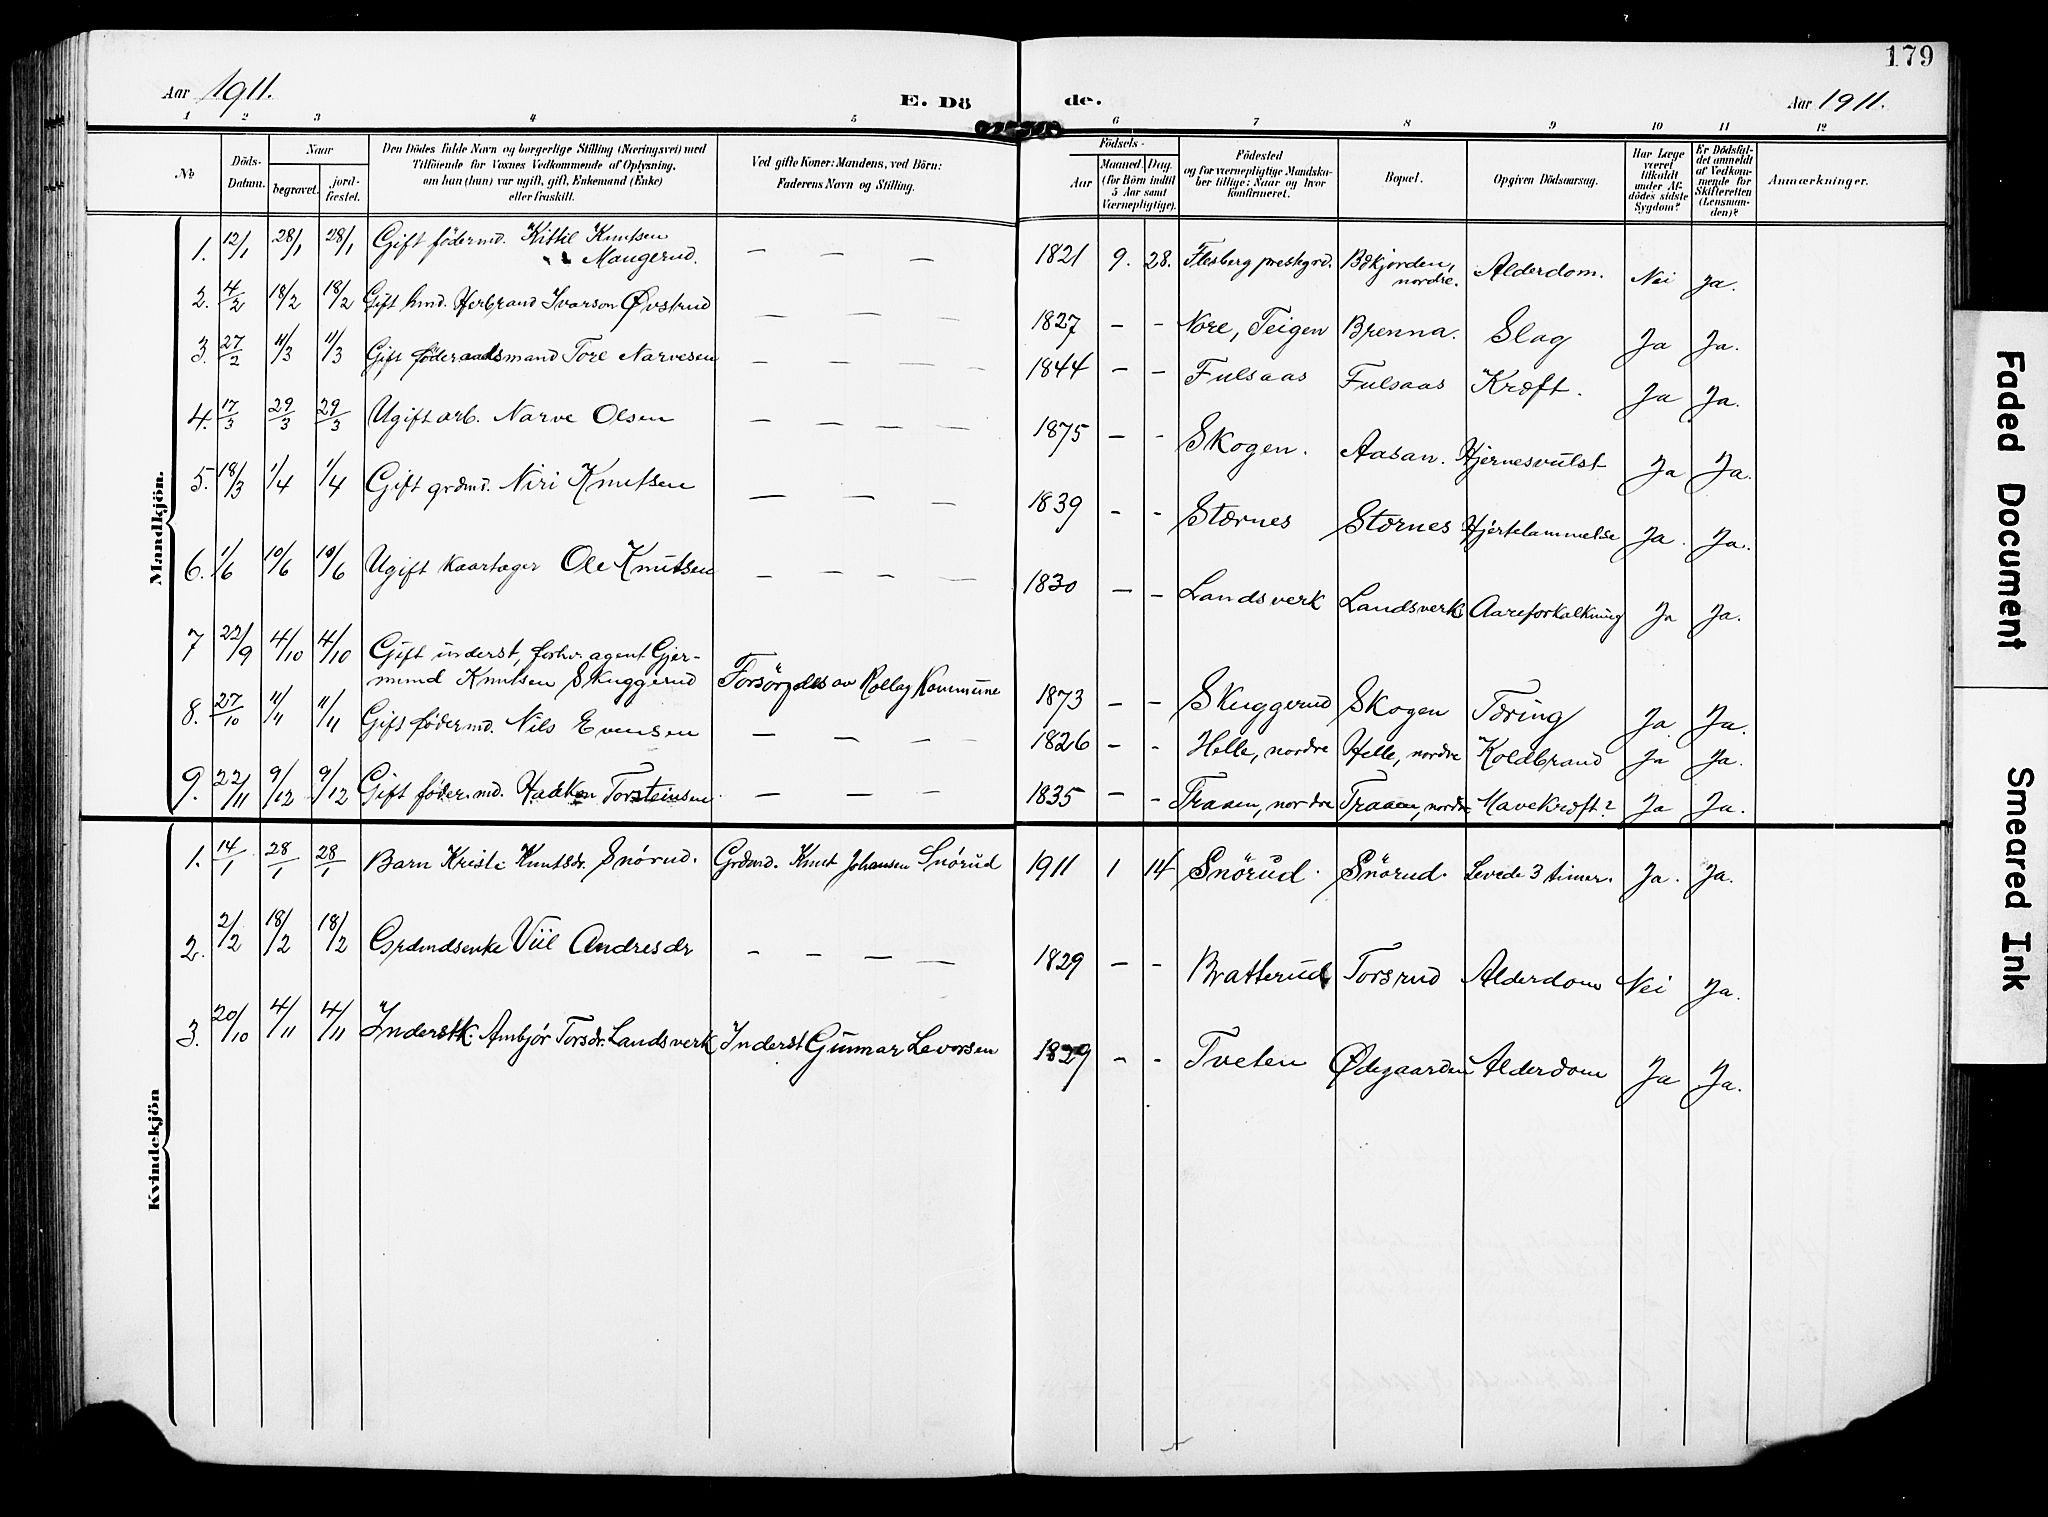 179
Aar 1911.
E. Dö de.
Aar 1911.
1 2 3 4 5 6 7 8 9 10 11 12
№
Döds-Datum.
Naar
begravet.
jord-fæstet.
Den Dödes fulde Navn og borgerlige Stilling (Næringsvei) med
Tilföiende for Voxnes Vedkommende af Oplysning,
om han (hun) var ugift, gift, Enkemand (Enke)
eller fraskilt.
Ved gifte Koner: Mandens, ved Börn:
Faderens Navn og Stilling.
Födsels-
Aar
Maaned. Dag.
(for Börn indtil
5 Aar samt
Værnepligtige).
Födested
og for værnepligtige Mandska-
ber tillige: Naar og hvor
konfirmeret.
Bopæl.
Opgiven Dödsaarsag.
Har Læge
været
tilkaldt
under Af-
dödes sidste
Sygdom?
Er Dödsfal-
det anmeldt
af Vedkom-
mende for
Skifteretten
(Lensman-
den)?
Anmærkninger.
Mandkjön.
1. 12/1 28/1 28/1 Gift födermd. Kittil Knutsen
" " Maugerud. — — — 1821 9. 28. Flesberg prestegrd. Bökjorden, nordre. Alderdom. Nei Ja.
2. 4/2 18/2 18/2 Gift hmd. Herbrand Ivarson Øvstrud — — — 1827 — - Nore, Teigen Brenna. Slag Ja Ja.
3. 27/2 11/3 11/3 Gift föderaadsmand Tore Narvesen — — — — 1844 — - Fulsaas Fulsaas Kræft. Ja Ja.
4. 17/3 29/3 29/3 Ugift arb. Narve Olsen — — — — 1875 — - Skogen. Aasan. Hjernesvulst Ja Ja.
5. 18/3 1/4 1/4 Gift grdmd. Niri Knutsen — — — 1839 - - Stærnes Stærnes Hjertelammelse Ja. Ja.
6. 1/6 10/6 10/6 Ugift kaartager Ole Knutsen — — — — 1830 — - Landsverk Landsverk Aareforkalkning Ja Ja.
7 22/9 4/10 4/10 Gift inderst, forhv. agent Gjer-
mund Knutsen Skuggerud Forsörgedes av Rollag Kommune 1873 — - Skuggerud Skogen Tæring Ja. Ja.
8. 27/10 11/11 11/11 Gift födermd. Nils Evensen — — — — 1826 — - Helle, nordre Helle, nordre Koldbrand Ja Ja.
9. 22/11 9/12 9/12 Gift föder.md. Haaken Torsteinsen — — — — 1835 — - Traaen, nordre Traaen, nordre Mavekræft? Ja Ja.
Kvindekjön
1. 14/1 28/1 28/1 Barn Kristi Knutsdr. Snörud. Grdmd. Knut Johansen Snörud 1911 1 14 Snörud. Snörud. Levede 3 timer. Ja. Ja.
2. 2/2 18/2 18/2 Grdmdsenke Viil Andresdr — — — — 1829 — - Bratterud Torsrud Alderdom Nei Ja.
3. 20/10 4/11 4/11 Inderstk. Ambjör Torsdr. Landsverk Inderst Gunnar Levorsen 1829 - - Tveten Ødegaarden Alderdom Ja Ja.
Faded Document
Smeared Ink